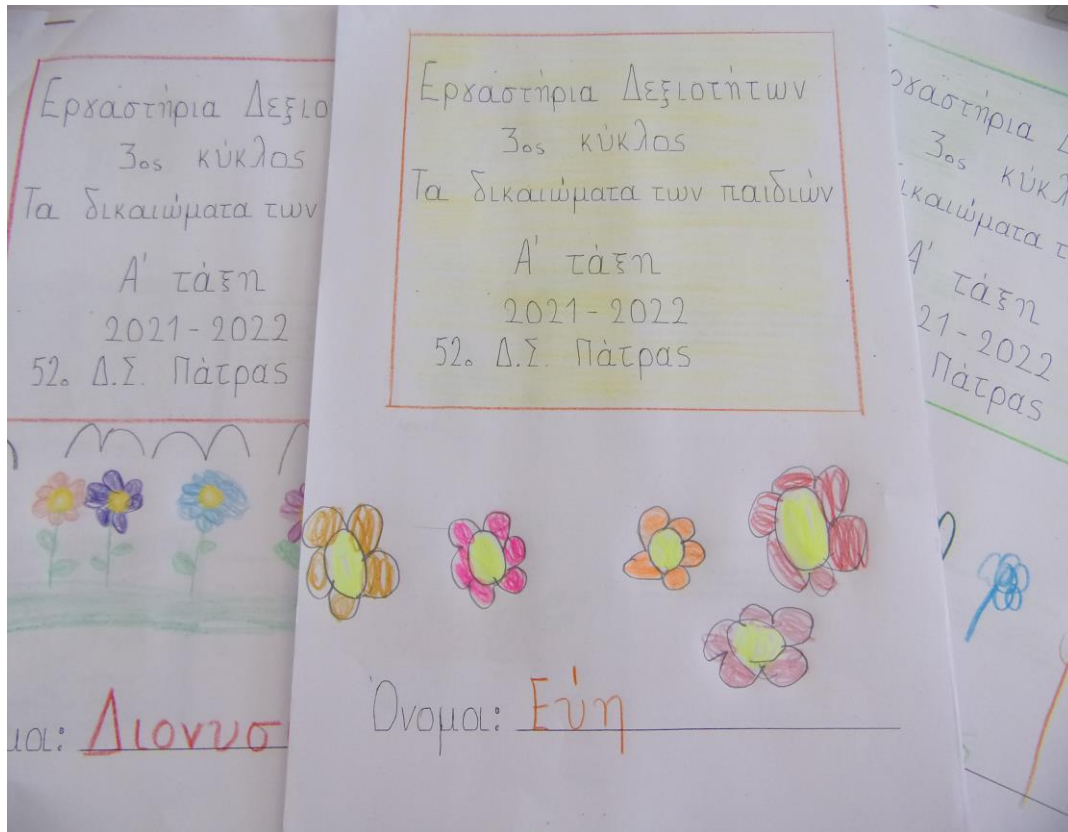 Εργαστήρια Δεξιο
3ος κύκλος
Τα δικαιώματα των
Α' τάξη
2021-2022
52ο Δ.Σ. Πάτρας
μα: Διονυσ
Εργαστήρια Δεξιοτήτων
3ος κύκλος
Τα δικαιώματα των παιδιών
Α' τάξη
2021-2022
52ο Δ.Σ. Πάτρας
Όνομα: Εύη
ργαστήρια Δ
3ος κύκλ
ικαιώματα τ
Α' τάξη
21-2022
Πάτρας